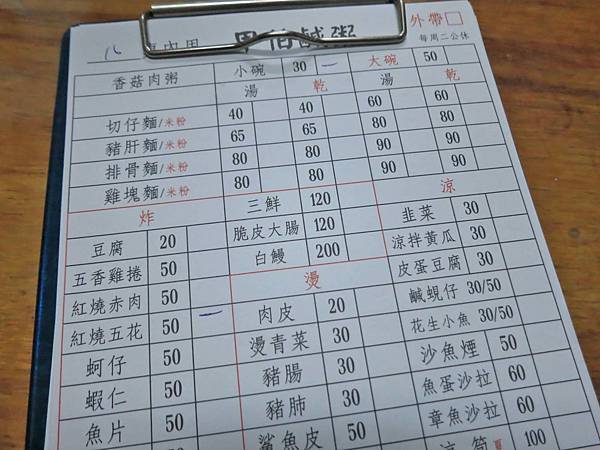 外帶□
周伯鹹粥
每周二公休
八 內用
香菇肉粥 小碗 30 一 大碗 50
湯 乾 湯 乾
切仔麵/米粉 40 40 60 60
豬肝麵/米粉 65 65 80 80
排骨麵/米粉 80 80 90 90
雞塊麵/米粉 80 80 90 90
炸 三鮮 120 涼
豆腐 20 脆皮大腸 120 韭菜 30
五香雞捲 50 白鰻 200 涼拌黃瓜 30
紅燒赤肉 50 一 燙 皮蛋豆腐 30
紅燒五花 50 肉皮 20 鹹蜆仔 30/50
蚵仔 50 燙青菜 30 花生小魚 30/50
蝦仁 50 豬腸 30 沙魚煙 50
魚片 50 豬肺 30 魚蛋沙拉 60
鯊魚皮 50 章魚沙拉 60
涼筍 夏 100